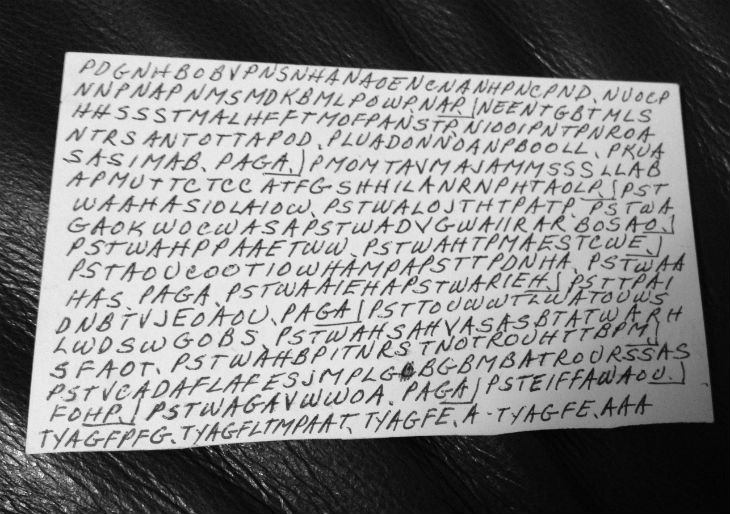 PDGNHBOBVPNSNHANAOENCNANHPNCPND, NUOCP
NNPNAPNMSMDKBMLPOWP,NAP,NEENTGBTMLS
HHSSSTMALHFFTMOFPANSTP,NIOOIPNTPNROA
NTRSANTOTTAPOD, PLUADONNOANPBOOLL, PKUA
SASIMAB, PAGA, PMOMTAVMAJAMMMSSSLLAB
APMUTTCTCC ATFGSHHILANRNPHTAOLP, PST
WAAHASIOLAIOW, PSTWALOJTHTPATP, PSTWA
GAOKWOCWASAPSTWADVGWAIIRAR, BOSAO,
PSTWAHPPAAETWW, PSTWAHTPMAESTCWE,
PSTAOUCOOTIOWHAMPAPSTTPDNHA, PSTWAA
HAS, PAGA, PSTWAAIEHAPSTWARIEH, PSTTPAI
DNBTVJEOAOU, PAGA, PSTTOUWWTLWATOUWS
LWDSWGOBS, PSTWAHSAHVASASBTATWARH
SFAOT, PSTWAHBPITNRSTNOTROUHTTBPM,
PSTVCADAFLAFESJMPLGBGBMBATROURSSAS
FOHP, PSTWAGAVWWOA, PAGA, PSTEIFFAWAOU,
TYAGFPFG, TYAGFLTMPAAT, TYAGFE, A-TYAGFE, AAA